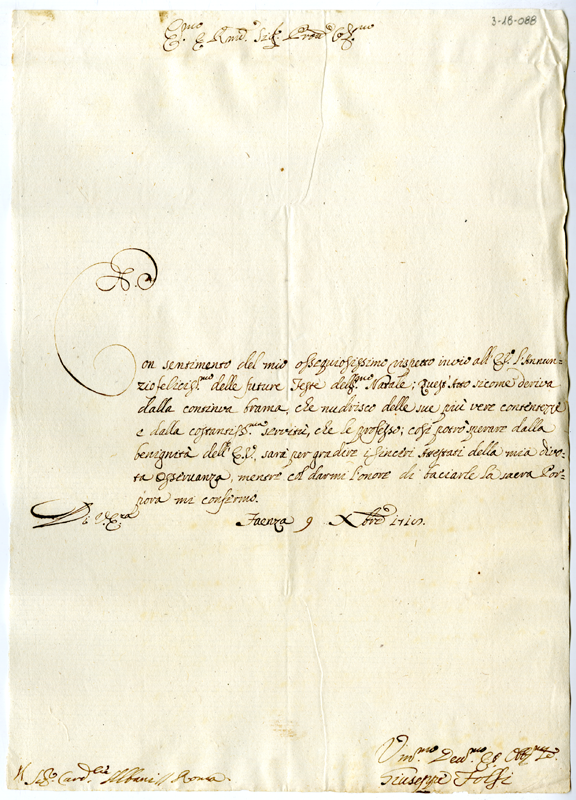 3-18-088
E.mo e R.mo Sig.re Pron.e Col.mo
Con sentimento del mio ossequiosissimo rispetto invio all'E.V. l'Annun-
zio feliciss.mo delle future Feste del S.mo Natale; Quest'Atto siccome deriva
dalla continva brama, che nudrisco delle sue più vere contentezze
e dalla costantiss.ma servitù, che le professo; così potrò sperare dalla
benignità dell'E.V. sarà per gradire i sinceri Attestati della mia divo-
ta Osservanza, mentre col darmi l'onore di baciarle la sacra Por-
pora mi confermo.
Di V. E.za Faenza 9 Xbre
Vm.mo Deu.mo Obl.mo
Giuseppe
Sig. Card.le Albani // Roma.